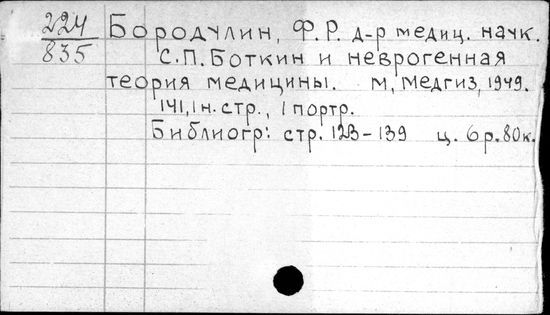 224
835
Бородулин, Ф.Р. д-р медиц. наук.
С.П. Боткин и неврогенная
теория медицины. М, Медгиз, 1949.
141, 1 н. стр., 1 портр.
Библиогр: стр. 123-139 ц. 6 р. 80 к.